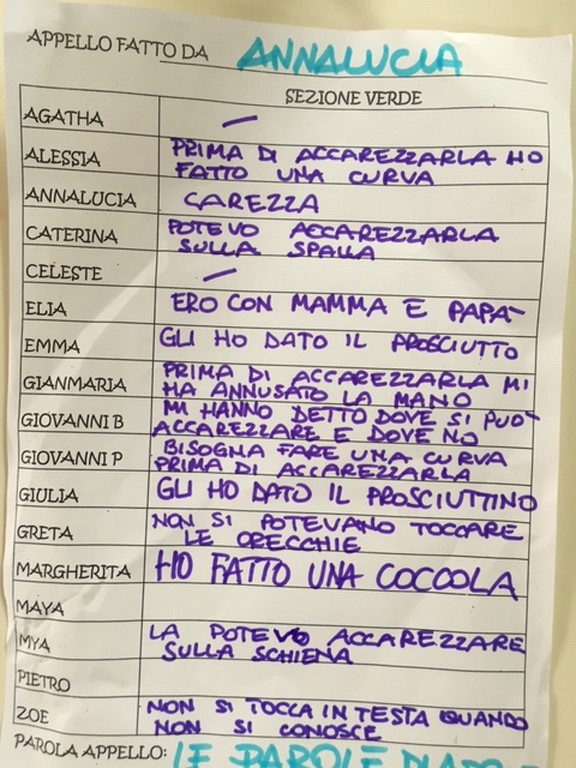 APPELLO FATTO DA ANNALUCIA
SEZIONE VERDE
AGATHA —
ALESSIA PRIMA DI ACCAREZZARLA HO
FATTO UNA CURVA
ANNALUCIA CAREZZA
CATERINA POTEVO ACCAREZZARLA
SULLA SPALLA
CELESTE —
ELIA ERO CON MAMMA E PAPA'
EMMA GLI HO DATO IL PROSCIUTTO
GIANMARIA PRIMA DI ACCAREZZARLA MI
HA ANNUSATO LA MANO
GIOVANNI B MI HANNO DETTO DOVE SI PUO'
ACCAREZZARE E DOVE NO
GIOVANNI P BISOGNA FARE UNA CURVA
PRIMA DI ACCAREZZARLA
GIULIA GLI HO DATO IL PROSCIUTTINO
GRETA NON SI POTEVANO TOCCARE
LE ORECCHIE
MARGHERITA HO FATTO UNA COCCOLA
MAYA
MYA LA POTEVO ACCAREZZARE
SULLA SCHIENA
PIETRO
ZOE NON SI TOCCA IN TESTA QUANDO
NON SI CONOSCE
PAROLA APPELLO: LE PAROLE